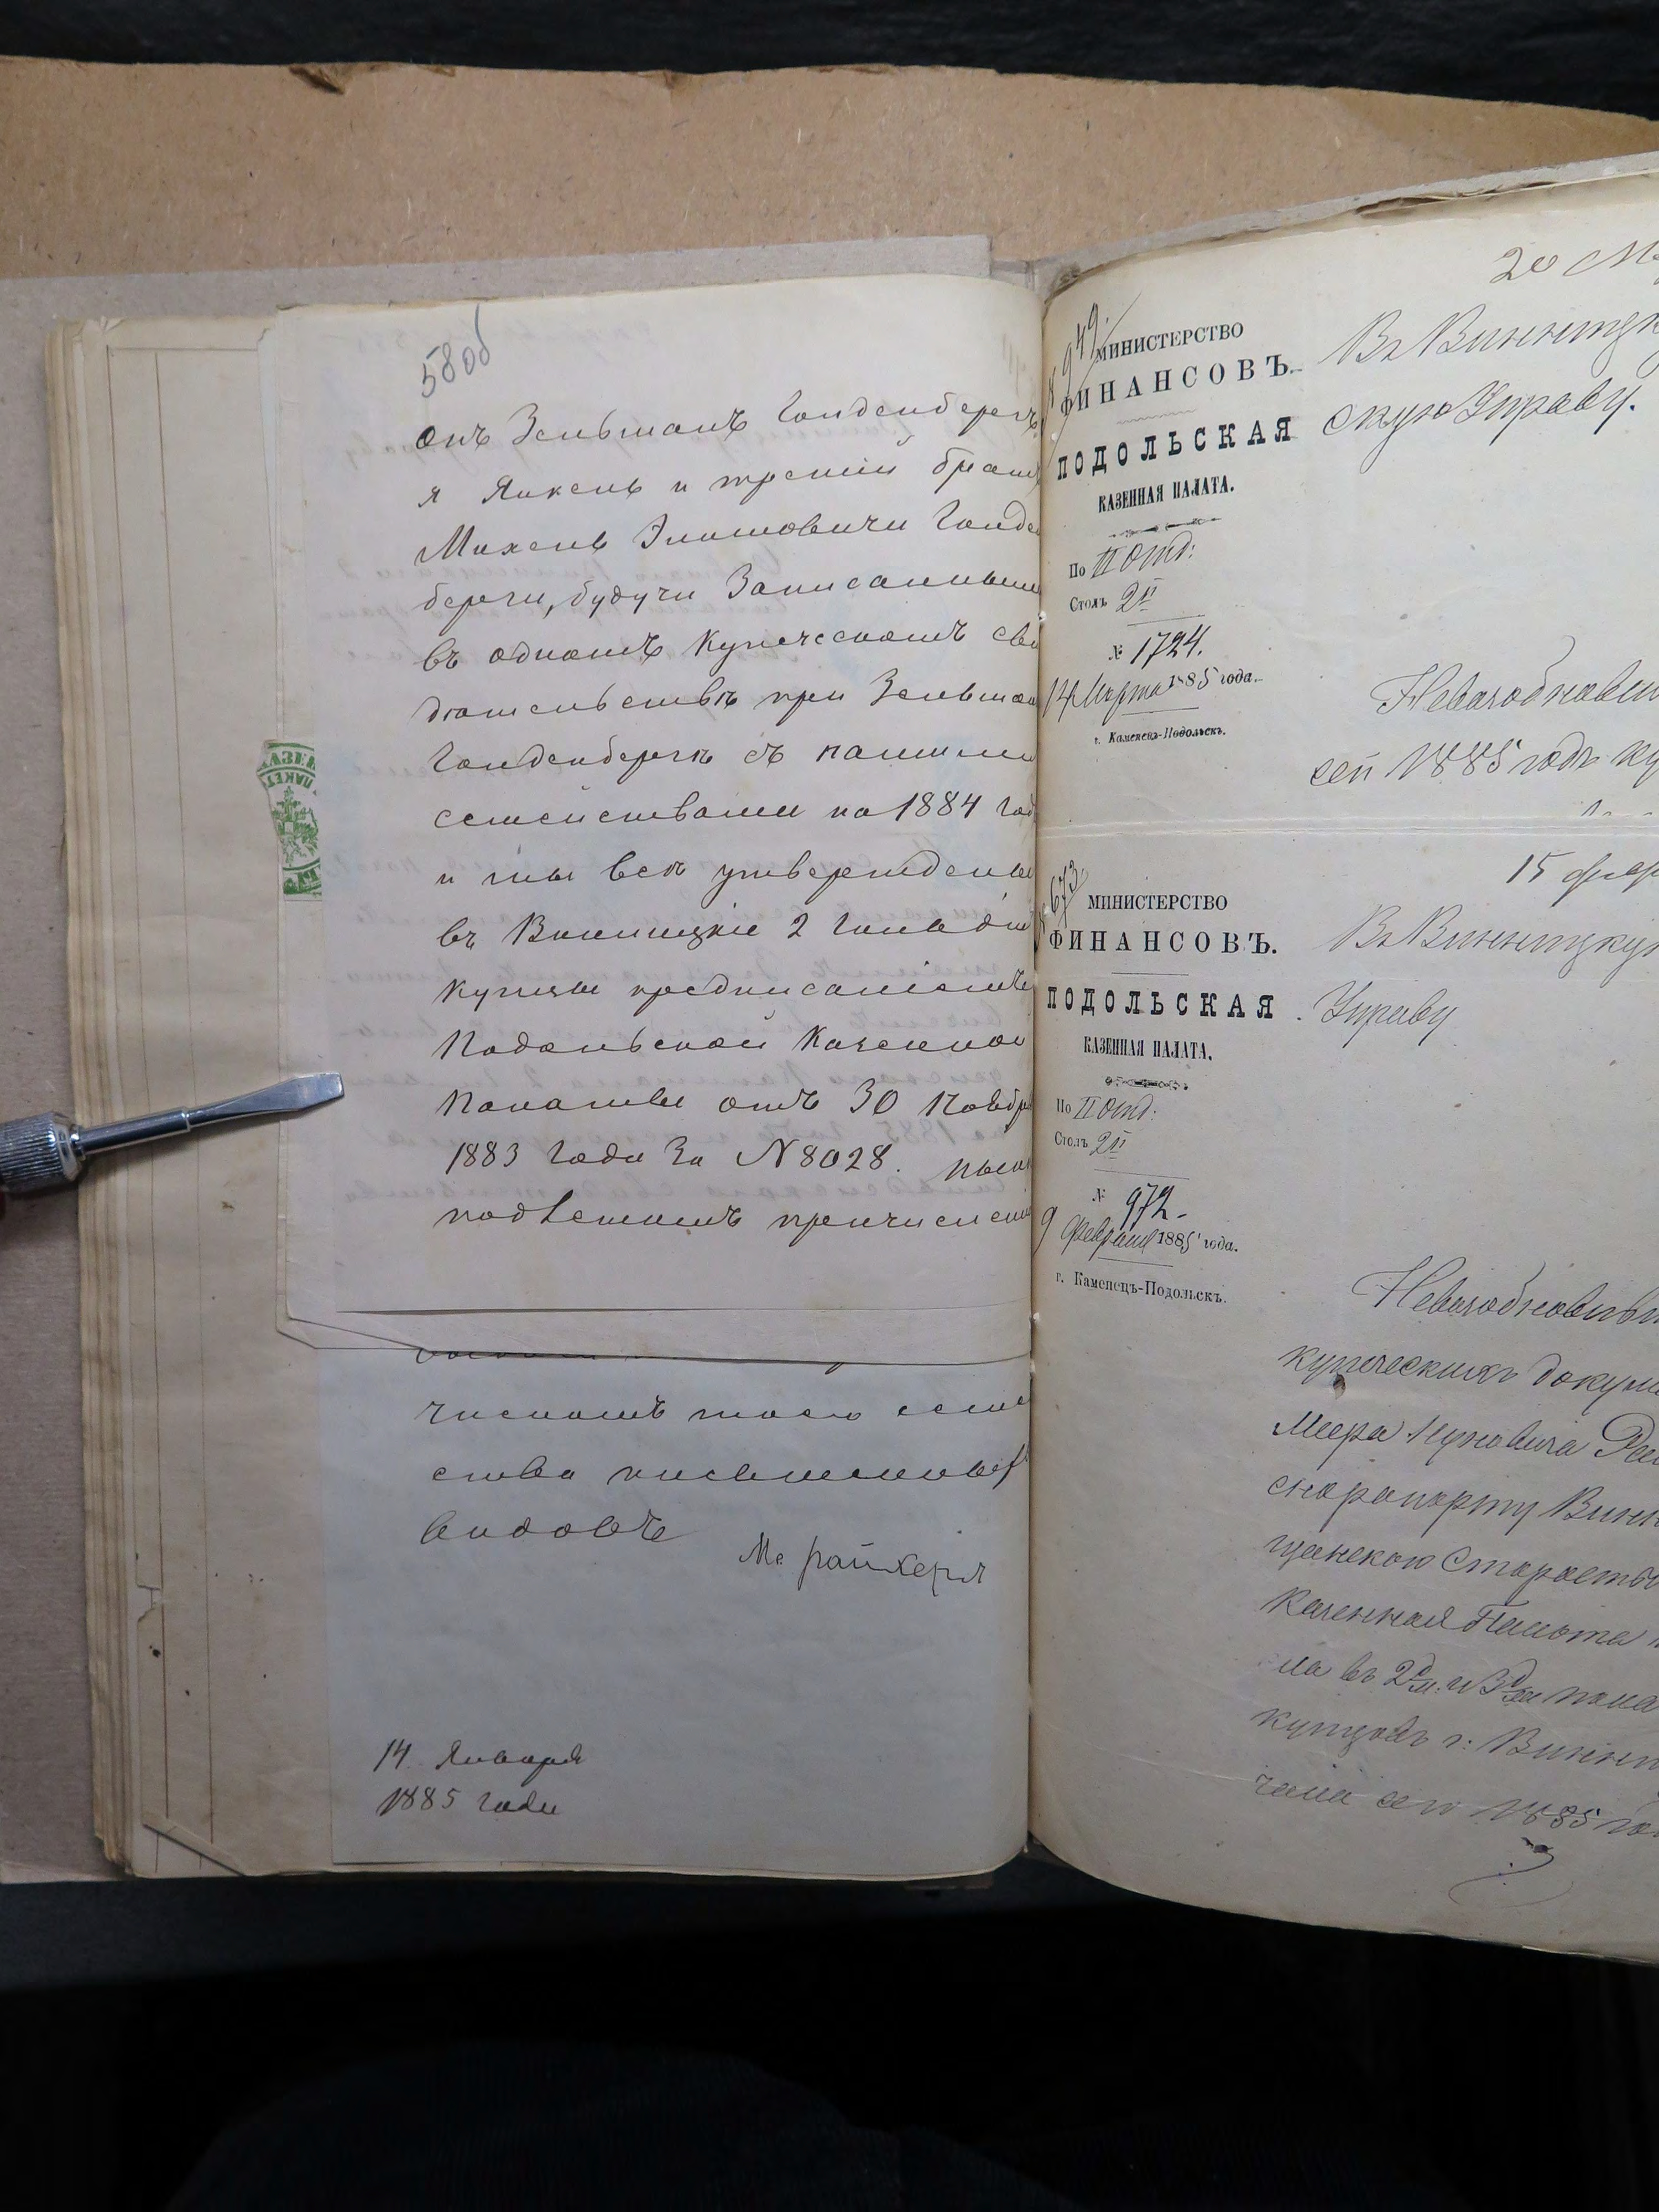 58об
онъ Зельманъ Гольденбергъ
я Янкель и третій братъ
Михель Эльшовичи Гольде
берги, будучи Записанными
въ одномъ купеческомъ сви
дѣтельствѣ при Зельман
Гольденбергѣ съ нашими
семействами на 1884 год
и мы всѣ утверждены
въ Винницкіе 2 гильдіи
купцы предписаніемъ
Подольской Казенной
Палаты отъ 30 Ноябр
1883 года За N 8028.
причислени
числомъ моего семе
ства письменныхъ
видовъ
14 Января
1885 года
949.
МИНИСТЕРСТВО
ФИНАНСОВЪ.
ПОДОЛЬСКАЯ
КАЗЕННАЯ ПАЛАТА.
По II Отд:
Столъ 2й
№ 1724.
14 Марта 1885 года.
г. Каменецъ-Подольскъ.
20 М
Въ Винницк
скую Управу.
Невозобновив
сей 1885 годъ ку
673
МИНИСТЕРСТВО
ФИНАНСОВЪ.
ПОДОЛЬСКАЯ
КАЗЕННАЯ ПАЛАТА.
По II Отд:
Столъ 2й
№ 972.
9 Февраля 1885 года.
г. Каменецъ-Подольскъ.
15 февр
Въ Винницкую
Управу
Невозобновивш
купеческихъ докуме
Меера
Винн
щанского Старосты
Казенная Палата
ла въ 2 и 3
купцовъ г: Винн
чала сего 1885 го